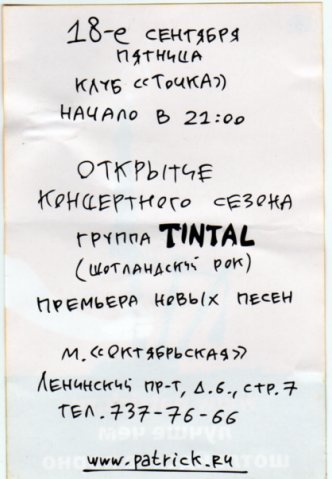 18-е СЕНТЯБРЯ
ПЯТНИЦА
КЛУБ «ТОЧКА»
НАЧАЛО В 21:00
ОТКРЫТИЕ
КОНЦЕРТНОГО СЕЗОНА
ГРУППА TINTAL
(ШОТЛАНДСКИЙ РОК)
ПРЕМЬЕРА НОВЫХ ПЕСЕН
М. «ОКТЯБРЬСКАЯ»
ЛЕНИНСКИЙ ПР-Т, Д.6., СТР.7
ТЕЛ. 737-76-66
www.patrick.ru